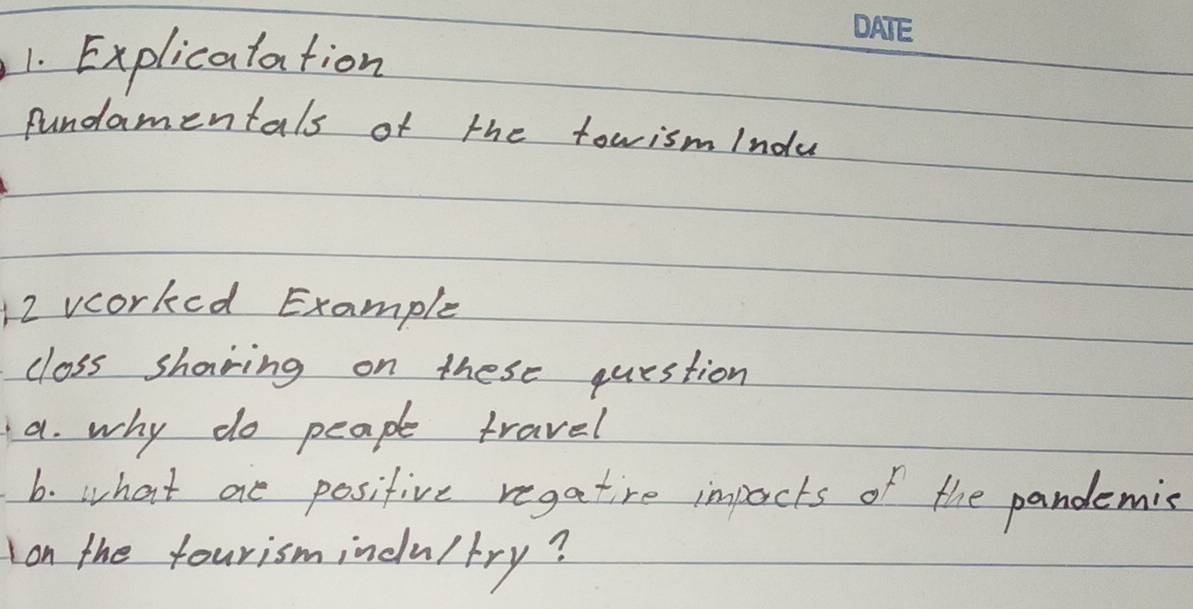 DATE
1. Explicatation
fundamentals of the towism Indu
2 vcorked Example
class sharing on these question
a. why do peaple travel
b. what are positive regative impacts of the pandemic
on the tourism industry?